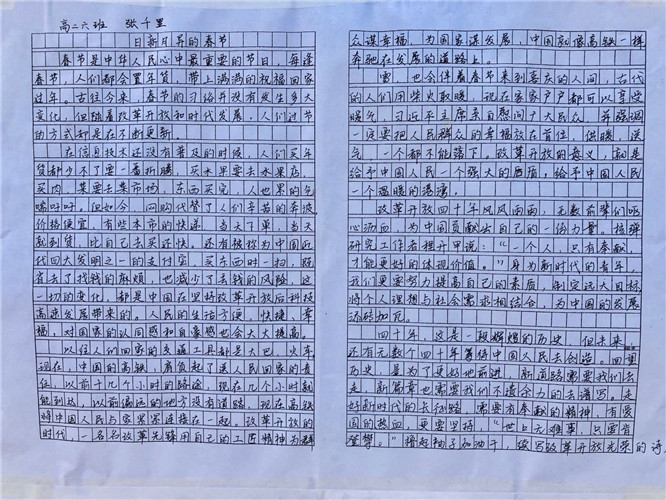 高二六班 张千里
日新月异的春节
春节是中华人民心中最重要的节日，每逢
春节，人们都会置年货，带上满满的祝福回家
过年。古往今来，春节的习俗并没有发生多大
变化，但随着改革开放和时代发展，人们过节
的方式却是在不断更新。
在信息技术还没有普及的时候，人们买年
货都少不了要一番折腾，买水果要去水果店，
买肉、菜要去菜市场，东西买完，人也累的气
喘吁吁。但如今，网购代替了人们辛苦的奔波
价格便宜，有些本市的快递，当天下单，当天
就到货，比自己去买还快。还有被称为中国近
代四大发明之一的支付宝，买东西时一扫，既
省去了找钱的麻烦，也减少了丢钱的风险，这
一切的变化，都是中国在坚持改革开放后科技
高速发展带来的。人民的生活方便、快捷、幸
福，对国家的认同感和自豪感也会大大提高。
以往人们回家的交通工具都是大巴、火车，
现在，中国的高铁，肩负起了送人民回家的责
任，以前十几个小时的路途，现在几个小时就
能到达，以前偏远的地方没有道路，现在高铁
将中国人民与家紧紧连接在一起。改革开放的
时代，一名名改革先锋用自己的工匠精神为群
众谋幸福，为国家谋发展，中国就像高铁一样
奔驰在发展的道路上。
雪，也会伴着春节来到喜庆的人间，古代
的人们用柴火取暖，现在家家户户都可以享受
暖气，习近平主席亲自慰问广大民众，并强调
一定要把人民群众的幸福放在首位，供暖、送
气，一个都不能落下。改革开放的意义，就是
给予中国人民一个强大的后盾，给予中国人民
一个温暖的港湾。
改革开放四十年风风雨雨，无数前辈们呕
心沥血，为中国贡献出自己的一份力量。核弹
研究工作者程开甲说：“一个人，只有奉献，
才能更好的体现价值。”身为新时代的青年，
我们更需努力提高自己的素质，制定远大目标
将个人理想与社会需求相结合，为中国的发展
添砖加瓦。
四十年，这是一段辉煌的历史，但未来，
还有无数个四十年等待中国人民去创造。回望
历史，是为了更好地前进，新道路需要我们去
走，新篇章也需要我们不遗余力的去谱写。走
好新时代的长征路，需要有奉献的精神，有爱
国的热血，更要坚持，“世上无难事，只要肯
登攀。”撸起袖子加油干，续写改革开放光荣的诗。